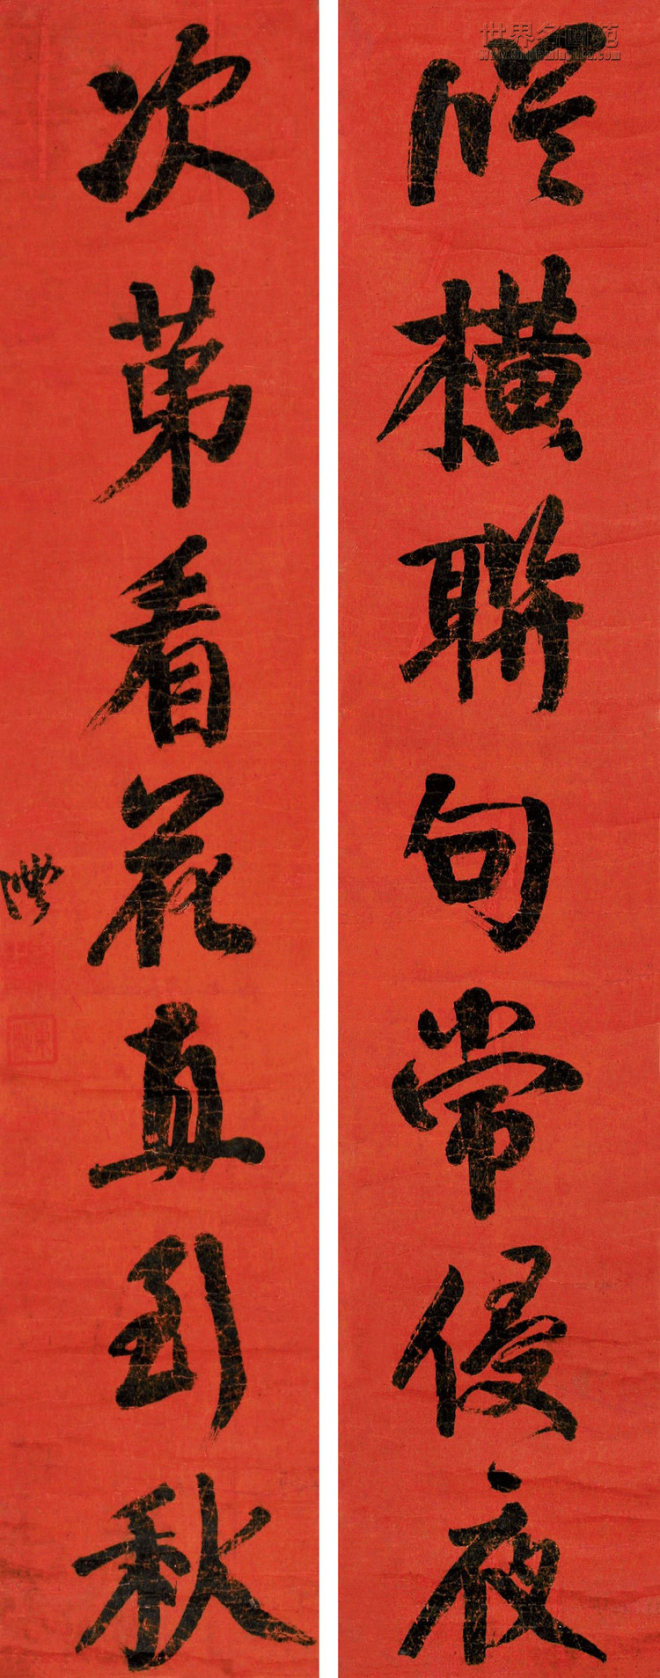 従横聯句常侵夜
次第看花直到秋
世界名画苑